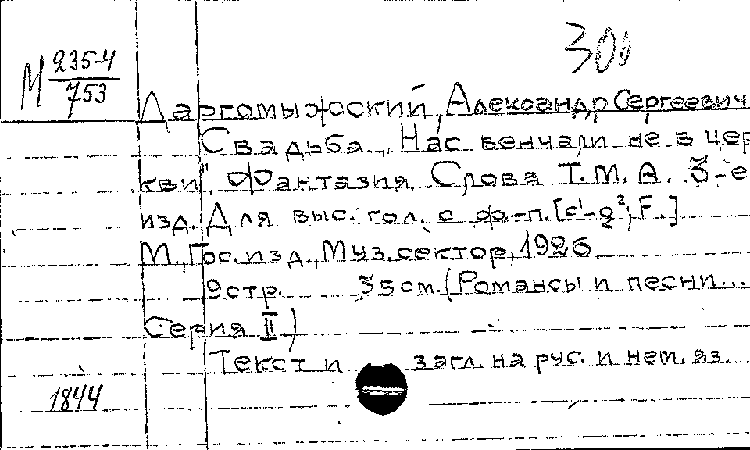 300
М 235-4
753
Даргомыжский, Александр Сергеевич
Свадьба. „Нас венчали не в цер
кви". Фантазия. Слова Т.М.А. 3-е
изд. Для выс. гол. с ф-п. [c¹-g²; F.]
М., Гос. изд., Муз. сектор, 1926
9 стр. 35 см. (Романсы и песни...
Серия II)
Текст и загл. на рус. и нем. яз.
1844